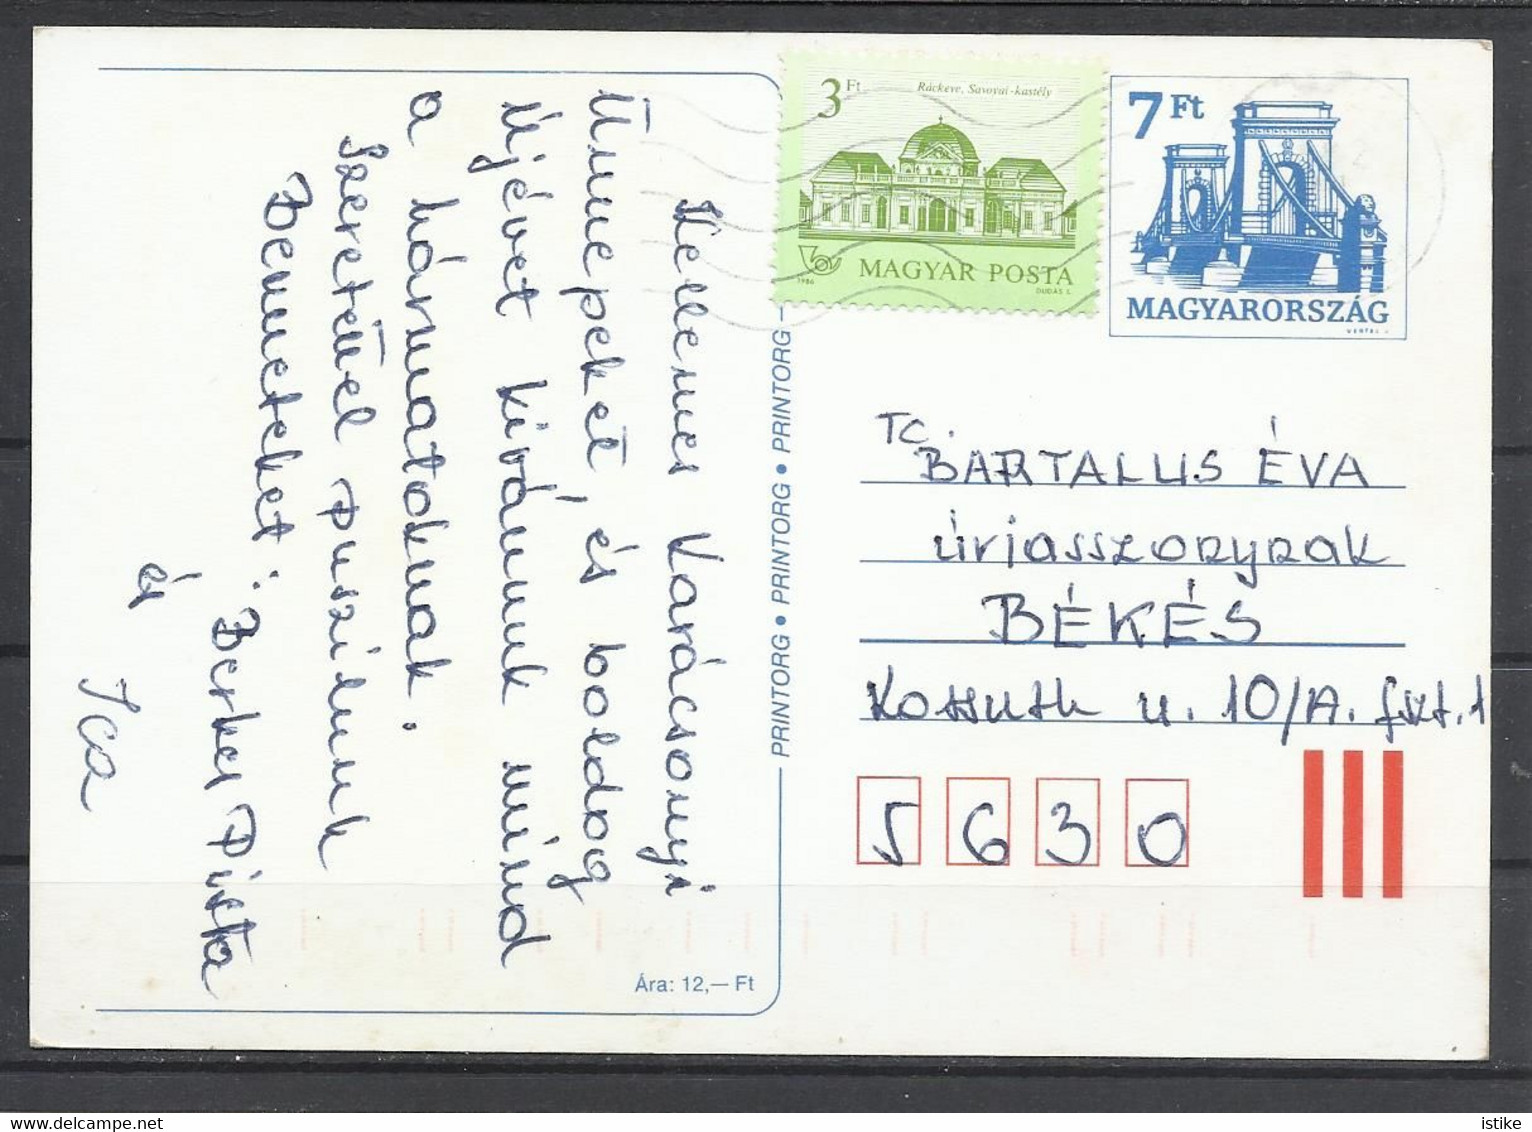 Kellemes Karácsonyi
Ünnepeket, és boldog
Újévet kívánunk mind
a hármatoknak.
Szeretettel puszilunk
Benneteket: Berkes Pista
és
Ica
3 Ft
Ráckeve, Savoyai-kastély
MAGYAR POSTA
1986
DUDÁS L.
7 Ft
MAGYARORSZÁG
VERTEL J.
PRINTORG • PRINTORG • PRINTORG
TC. BARTALUS ÉVA
úriasszonynak
BÉKÉS
Kossuth u. 10/A. fszt. 1
5630
Ára: 12,— Ft
www.delcampe.net
istike